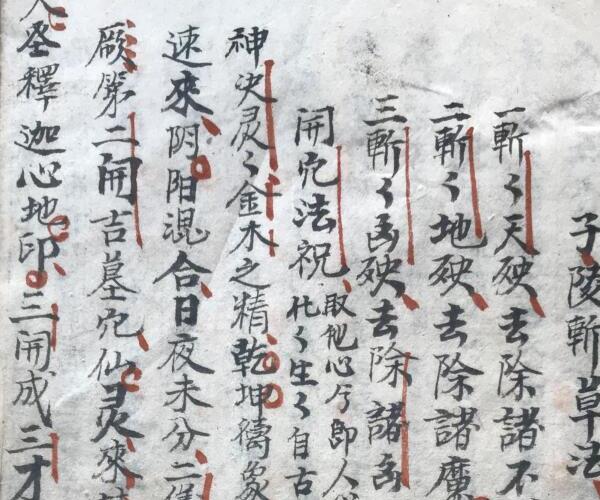 子陵斬草法
一斬々天殃去除諸不
二斬々地殃去除諸魔
三斬々凶殃去除諸凶
開穴法祝
取他心今即人
化々生々自古
神决灵々金木之精乾坤禱象
速來阴阳混合日夜未分二儀
厥第二開吉墓穴仙灵來
圣釋迦心地印三開成三才